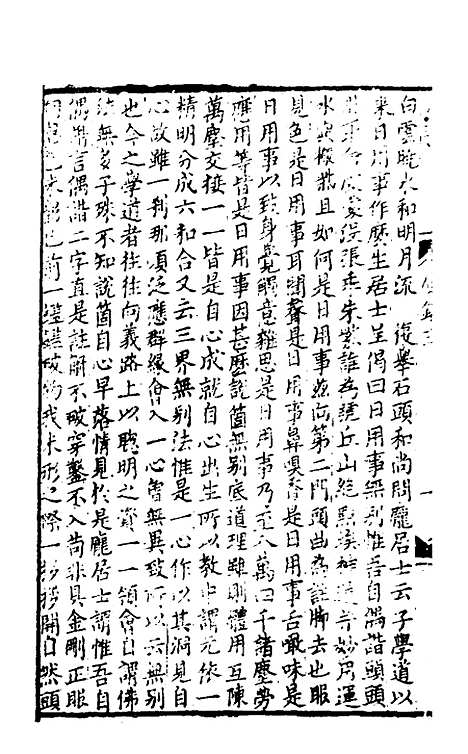 白雲曉水和明月流　復舉石頭和尚問龐居士云子學道以
來日用事作麽生居士呈偈曰日用事無別惟吾自偶諧頭頭
非取捨處處沒張乖朱紫誰為號丘山絕點埃神通并妙用運
水與搬柴且如何是日用事茲向第二門頭曲為註脚去也眼
見色是日用事耳聞聲是日用事鼻嗅香是日用事舌嘗味是
日用事以致身覺觸意雜思是日用事乃至八萬四千諸塵勞
應用等皆是日用事因甚麽說箇無別底道理雖則體用互陳
萬塵交接一一皆是自心成就自心出生所以教中謂元依一
精明分成六和合又云三界無別法惟是一心作以其洞見自
心故雖一刹那頃泛應群緣會入一心曾無異致所以云無別
也今之學道者往往向義路上以聰明之資一一領會自謂佛
法無多子殊不知說箇自心早落情見於是龐居士謂惟吾自
偶諧言偶諧二字直是註解不破穿鑿不入苟非具金剛正眼
向是已未彰已前一鎚鎚破的我未形之際一拶拶開自然頭